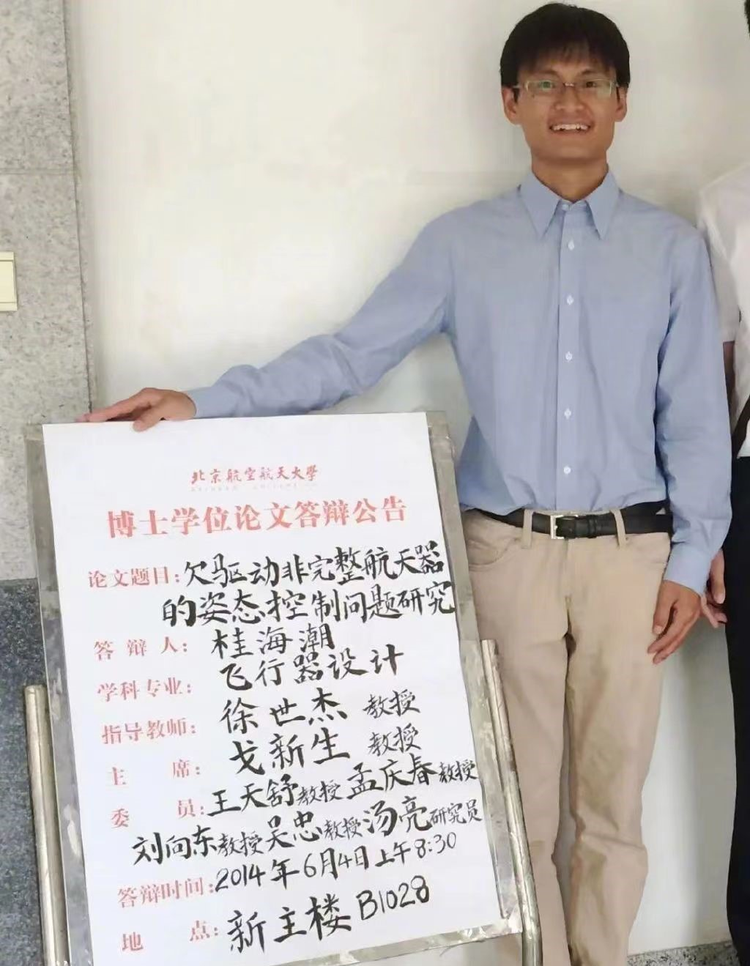 北京航空航天大學
博士学位论文答辩公告
论文题目:欠驱动非完整航天器
的姿态控制问题研究
答辩人:桂海潮
学科专业:飞行器设计
指导教师:徐世杰 教授
主席:戈新生 教授
委员:王天舒教授孟庆春教授
刘向东教授吴忠教授汤亮研究员
答辩时间:2014年6月4日上午8:30
地点:新主楼B1028